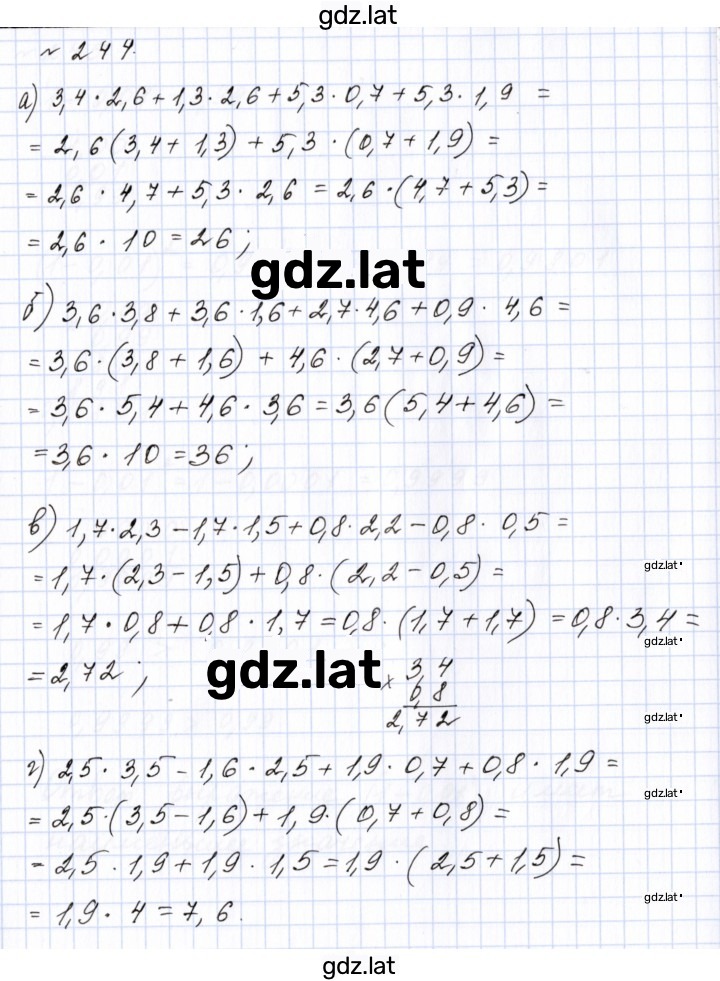 gdz.lat
№ 244.
а) 3,4 · 2,6 + 1,3 · 2,6 + 5,3 · 0,7 + 5,3 · 1,9 =
= 2,6 (3,4 + 1,3) + 5,3 · (0,7 + 1,9) =
= 2,6 · 4,7 + 5,3 · 2,6 = 2,6 · (4,7 + 5,3) =
= 2,6 · 10 = 26 ;
gdz.lat
б) 3,6 · 3,8 + 3,6 · 1,6 + 2,7 · 4,6 + 0,9 · 4,6 =
= 3,6 · (3,8 + 1,6) + 4,6 · (2,7 + 0,9) =
= 3,6 · 5,4 + 4,6 · 3,6 = 3,6 (5,4 + 4,6) =
= 3,6 · 10 = 36 ;
в) 1,7 · 2,3 - 1,7 · 1,5 + 0,8 · 2,2 - 0,8 · 0,5 =
= 1,7 · (2,3 - 1,5) + 0,8 · (2,2 - 0,5) =
gdz.lat
= 1,7 · 0,8 + 0,8 · 1,7 = 0,8 · (1,7 + 1,7) = 0,8 · 3,4 =
gdz.lat
= 2,72 ;
gdz.lat
× 3,4
0,8
2,72
gdz.lat
г) 2,5 · 3,5 - 1,6 · 2,5 + 1,9 · 0,7 + 0,8 · 1,9 =
gdz.lat
= 2,5 · (3,5 - 1,6) + 1,9 · (0,7 + 0,8) =
= 2,5 · 1,9 + 1,9 · 1,5 = 1,9 · (2,5 + 1,5) =
gdz.lat
= 1,9 · 4 = 7,6.
gdz.lat